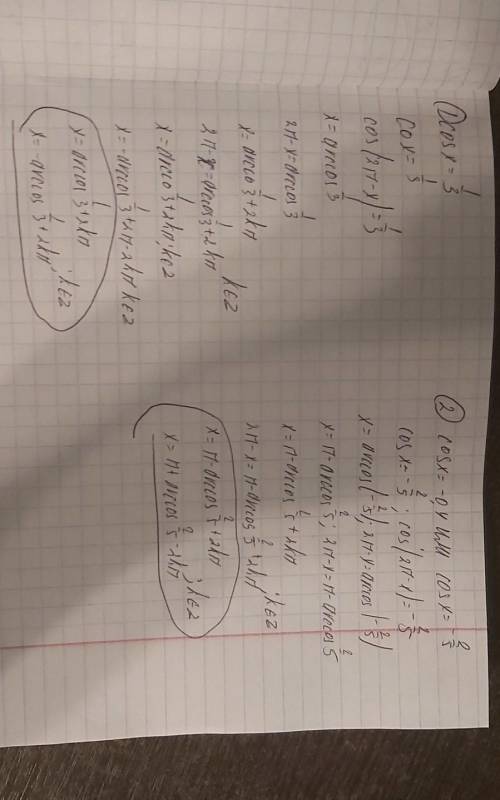 ① cos x = 1/3
cox = 1/3
cos(2π-x) = 1/3
x = arccos 1/3
2π-x = arccos 1/3
x = arcco 1/3 + 2kπ
2π-x = arccos 1/3 + 2kπ k∈Z
x = arcco 1/3 + 2kπ, k∈Z
x = -arccos 1/3 + 2π - 2kπ k∈Z
x = arccos 1/3 + 2kπ
x = -arccos 1/3 + 2kπ, k∈Z
② cos x = -0,4 или cos x = -2/5
cos x = -2/5; cos(2π-x) = -2/5
x = arccos(-2/5); 2π-x = arccos(-2/5)
x = π - arccos 2/5; 2π-x = π - arccos 2/5
x = π - arccos 2/5 + 2kπ
2π-x = π - arccos 2/5 + 2kπ, k∈Z
x = π - arccos 2/5 + 2kπ
x = π + arccos 2/5 - 2kπ, k∈Z